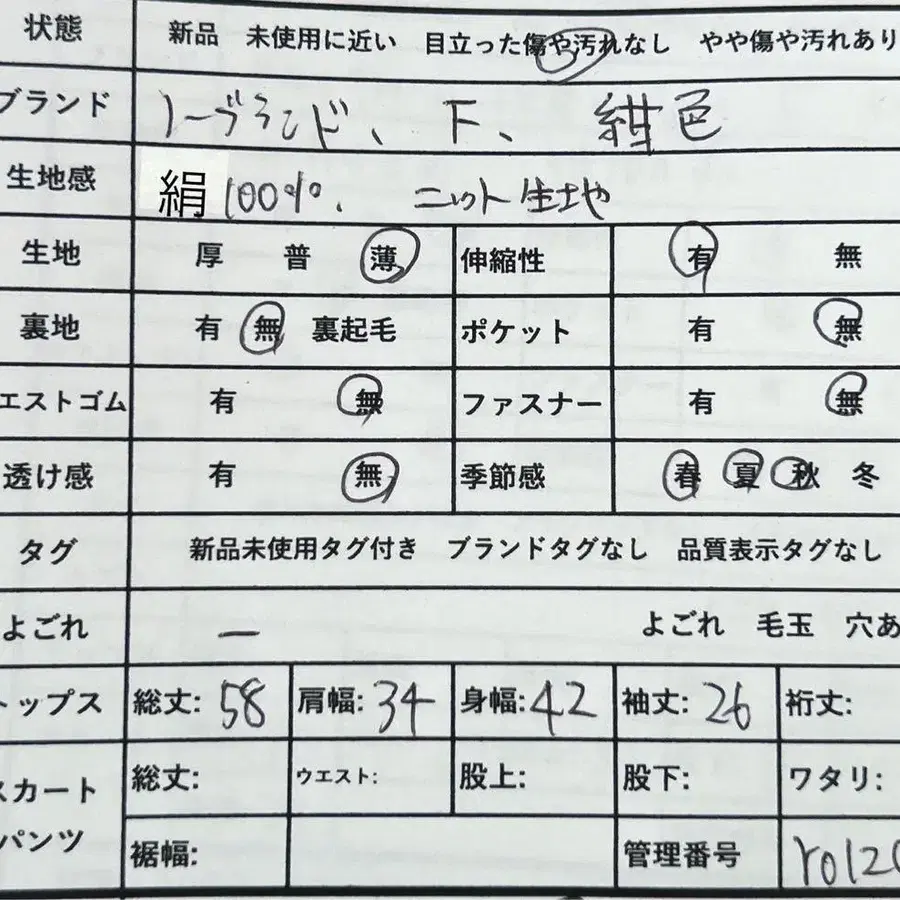 状態 新品 未使用に近い 目立った傷や汚れなし やや傷や汚れあり
ブランド ノーブランド、下、紺色
生地感 絹100%. ニット生地
生地 厚 普 薄 伸縮性 有 無
裏地 有 無 裏起毛 ポケット 有 無
エストゴム 有 無 ファスナー 有 無
透け感 有 無 季節感 春 夏 秋 冬
タグ 新品未使用タグ付き ブランドタグなし 品質表示タグなし
よごれ ー よごれ 毛玉 穴あ
トップス 総丈: 58 肩幅: 34 身幅: 42 袖丈: 26 裄丈:
スカート 総丈: ウエスト: 股上: 股下: ワタリ:
パンツ 裾幅: 管理番号 r0120